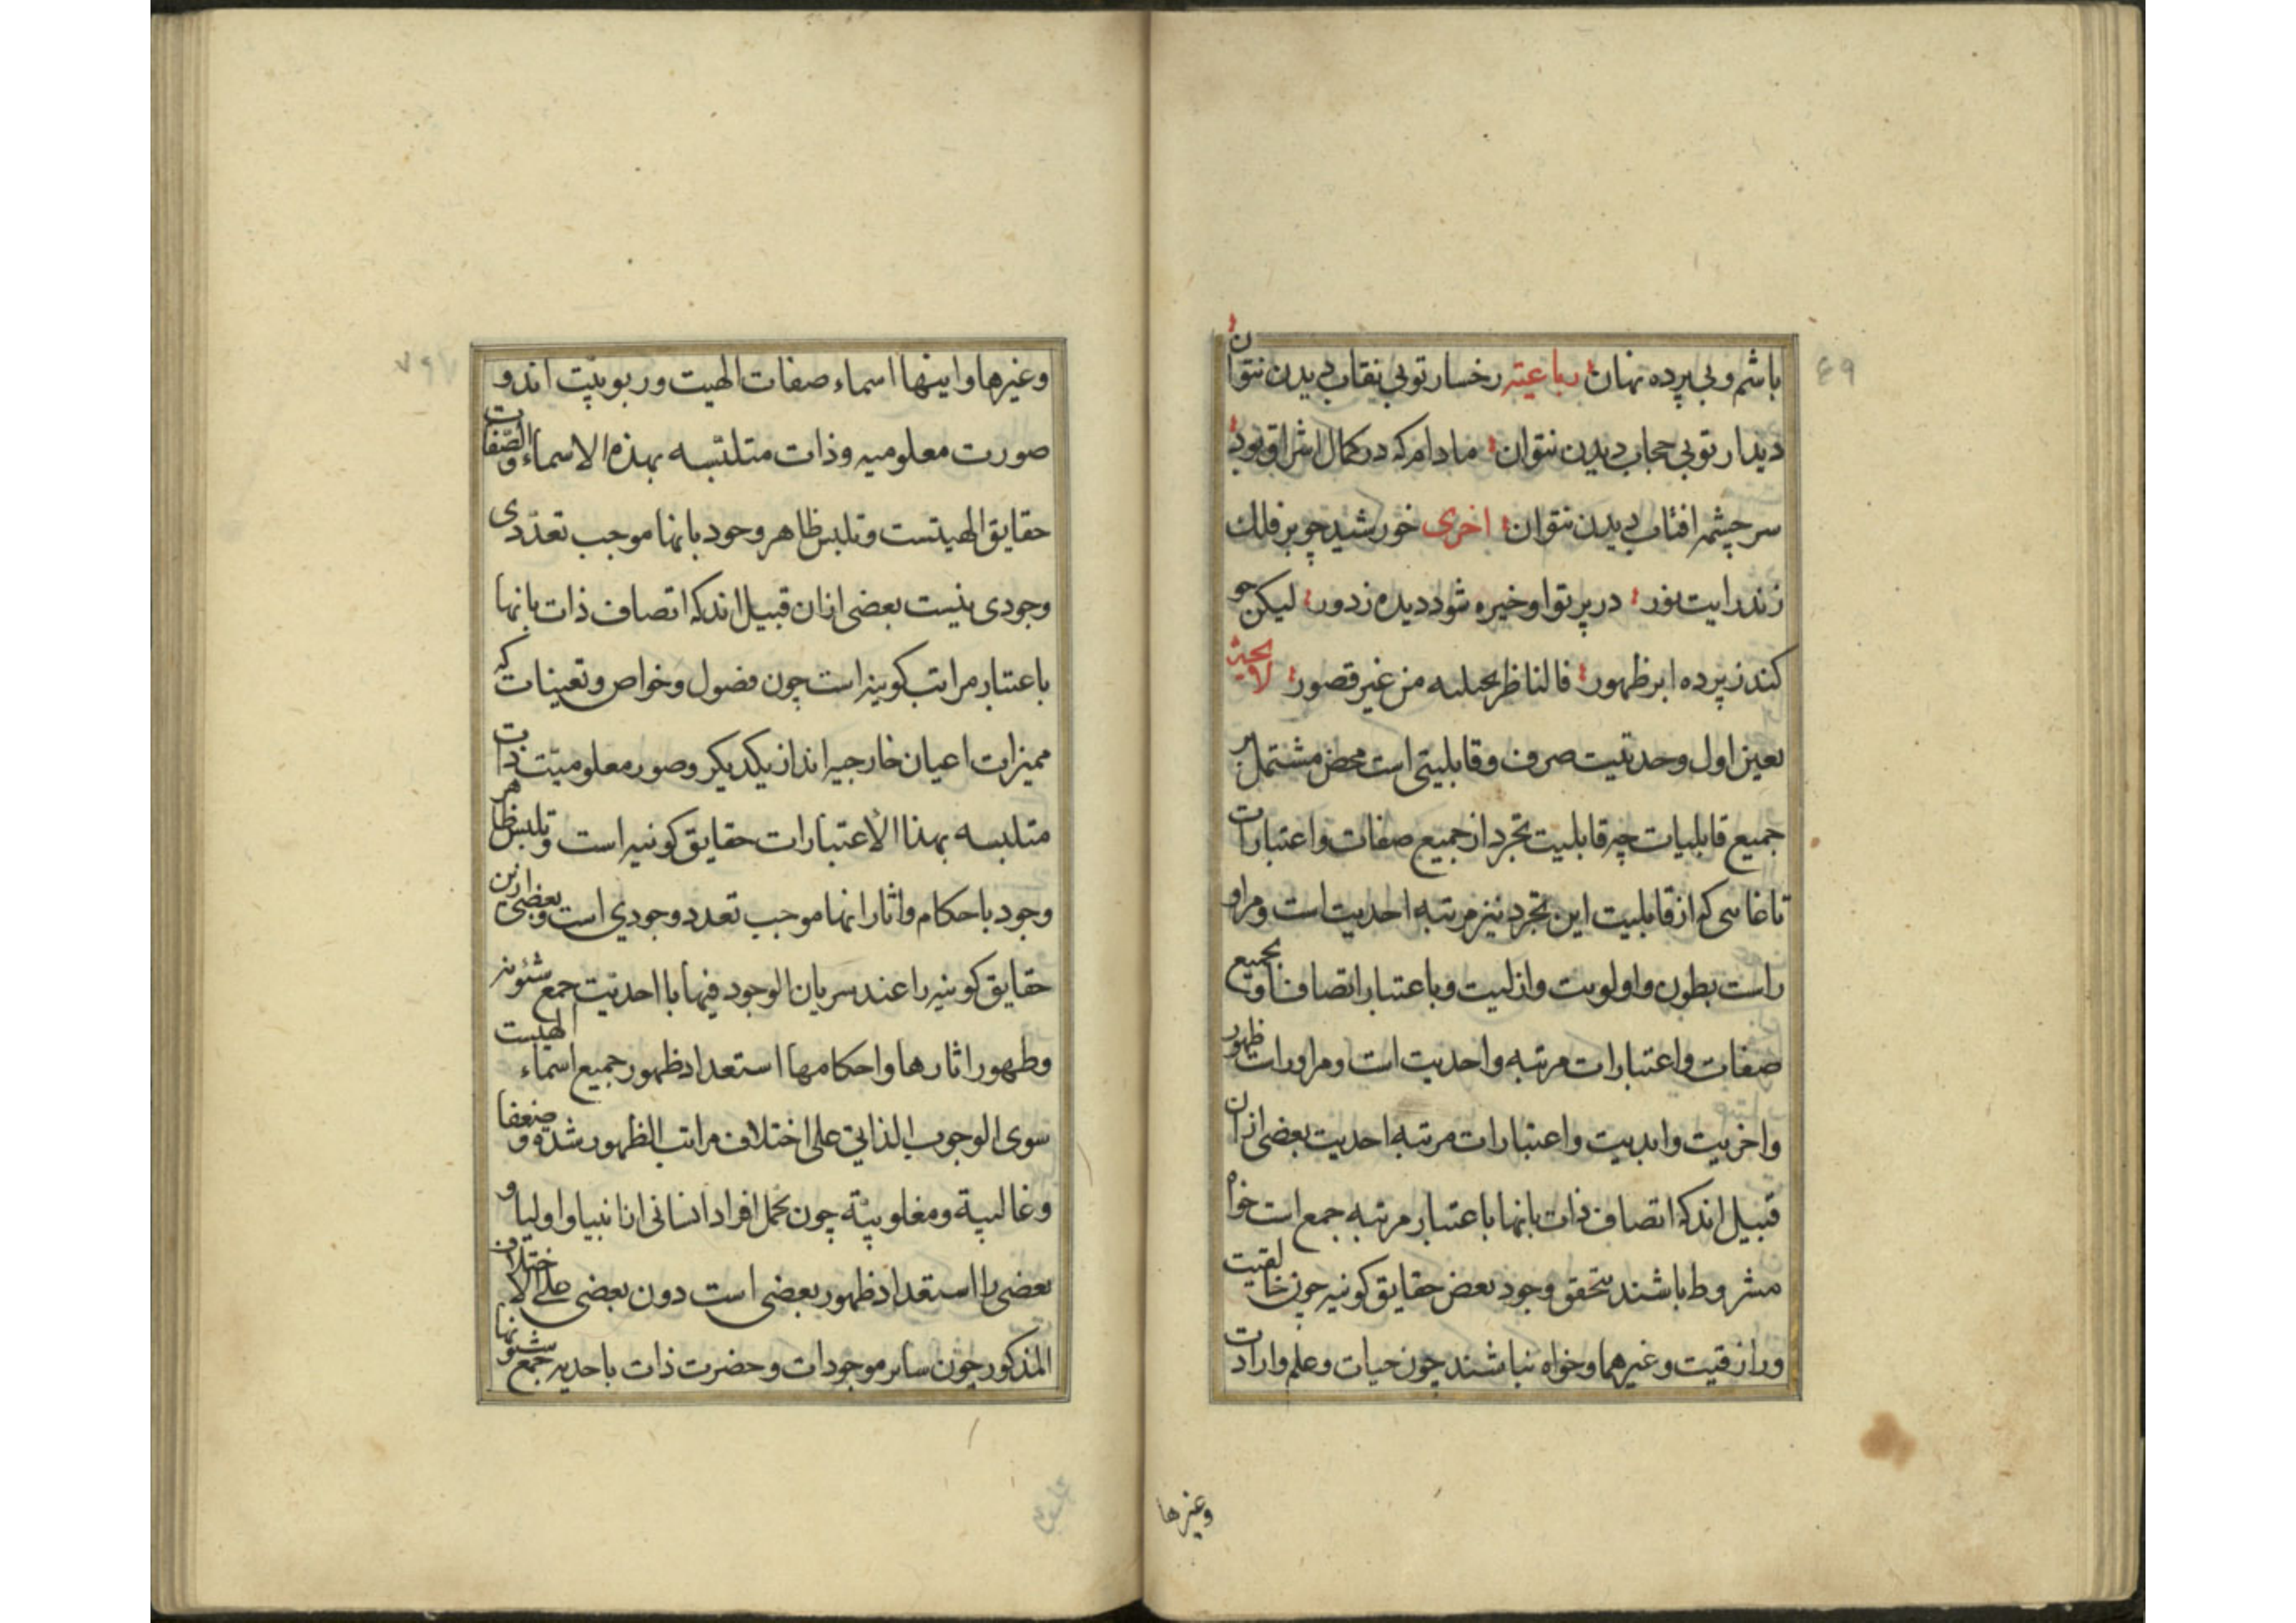 ٤٩
باشم و بی پرده نهان رباعیته رخسار تو بی نقاب دیدن نتوان
دیدار تو بی حجاب دیدن نتوان مادام که در کمال اشراق بود
سرچشمه افتاب دیدن نتوان اخری خورشید چو بر فلک
زند رایت نور در پرتو او خیره شود دیده ز دور لیکن چو
کند ز پرده ابر ظهور فالناظر یجتلیه من غیر قصور لایحه
تعین اول وحدتیت صرف و قابلیتی است محض مشتمل بر
جمیع قابلیات چه قابلیت تجرد از جمیع صفات و اعتبارات
که از قابلیت این تجرد نیز مرتبه احدیت است و مراو
راست بطون و اولویت و ازلیت و باعتبار اتصاف او بجمیع
صفات و اعتبارات مرتبه واحدیت است و مراوراست ظهور
واخریت وابدیت واعتبارات مرتبه احدیت بعضی ازان
قبیل اند که اتصاف ذات بانها باعتبار مرتبه جمع است خواه
مشروط باشند بتحقق وجود بعض حقایق کونیه چون خالقیت
ورازقیت وغیرهما وخواه نباشند چون حیات وعلم وارادت
وغیرها
وغیرها واینها اسماء صفات الهیت وربوبیّت اند و
صورت معلومیه وذات متلبّسه بهذه الاسماء والصّفات
حقایق الهیتست وتلبس ظاهر وجود بانها موجب تعدّدی
وجودی نیست بعضی ازان قبیل اند که اتصاف ذات بانها
باعتبار مراتب کونیه است چون فضول وخواص وتعینات که
ممیزات اعیان خارجیه اند از یکدیکر وصور معلومیّت ذات
متلبسه بهذا الاعتبارات حقایق کونیه است وتلبس ظاهر
وجود باحکام واثار انها موجب تعدد وجودی است وبعضی ازین
حقایق کونیه را عند سریان الوجود فیها باحدیّت جمع شئونه
وظهور اثارها واحکامها استعداد ظهور جمیع اسماء الهیست
سوی الوجوب الذاتی علی اختلاف مراتب الظهور شدة وضعفا
وغالبیة ومغلوبیّة چون کمل افراد انسانی از انبیا واولیا و
بعضی را استعداد ظهور بعضی است دون بعضی علی الاختلاف
المذکور چون سایر موجودات وحضرت ذات باحدیه جمع شئونها